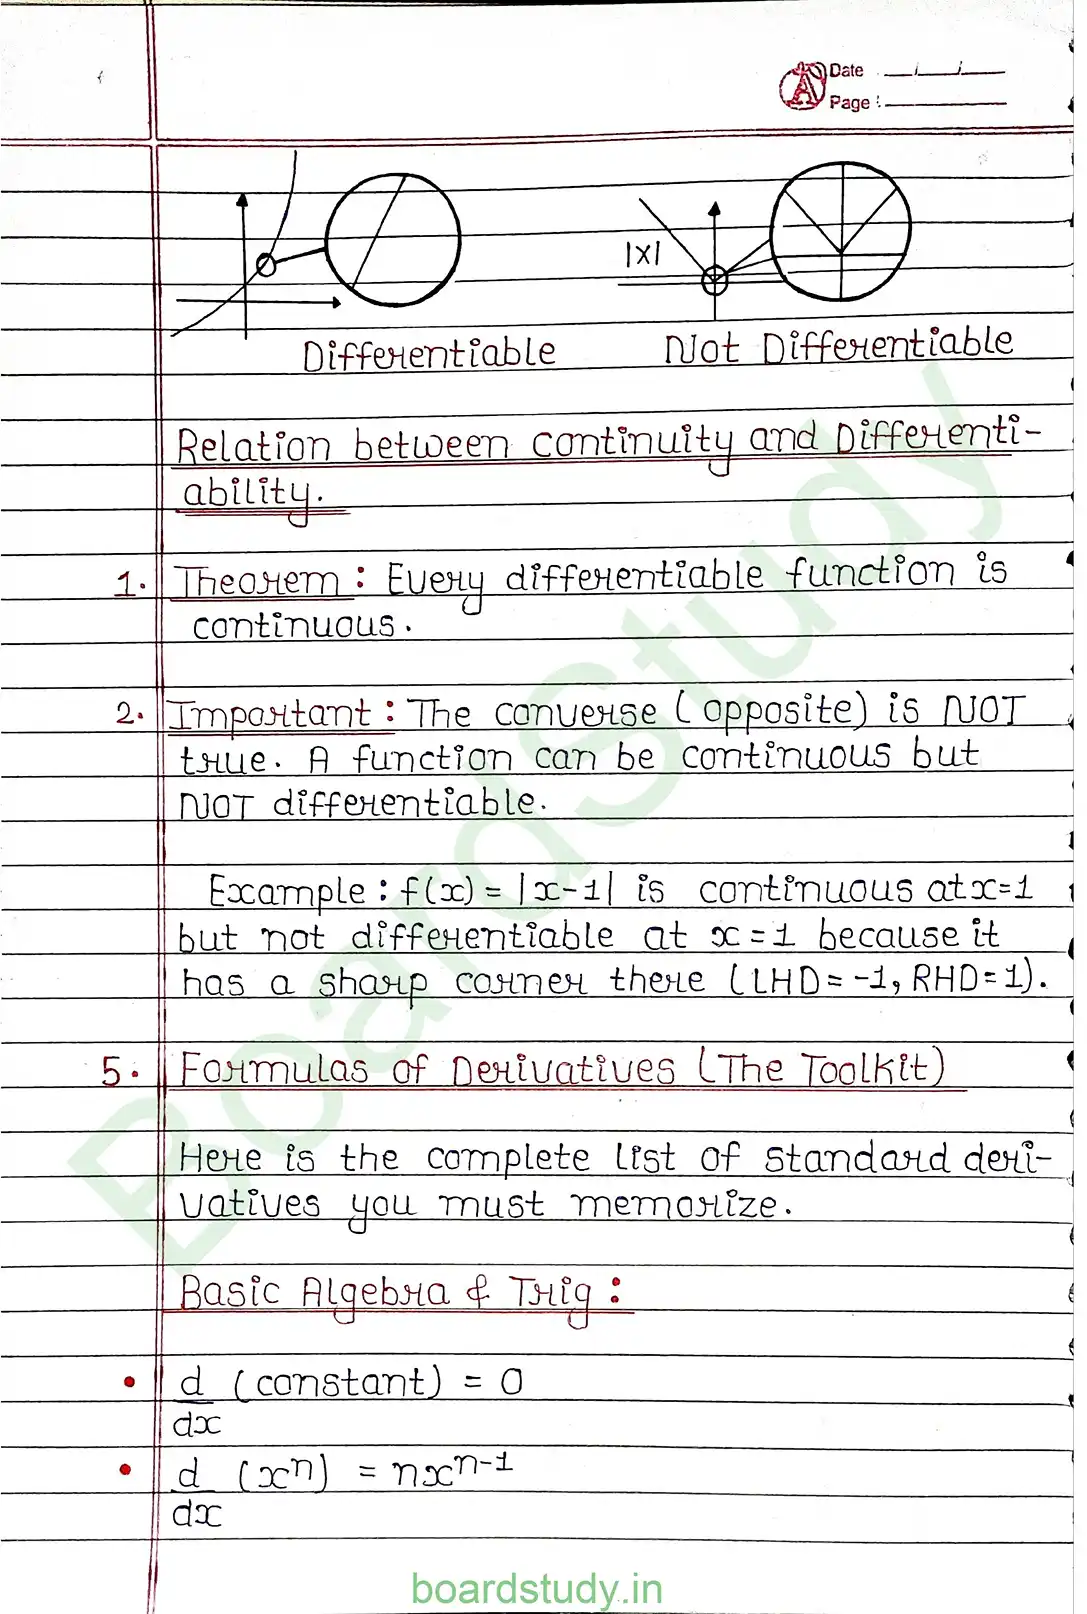 Date __/__/__
Page :
|x|
Differentiable Not Differentiable
Relation between continuity and Differenti-
ability.
1. Theorem : Every differentiable function is
continuous.
2. Important : The converse (opposite) is NOT
true. A function can be continuous but
NOT differentiable.
Example : f(x) = |x-1| is continuous at x=1
but not differentiable at x=1 because it
has a sharp corner there (LHD = -1, RHD = 1).
5. Formulas of Derivatives (The Toolkit)
Here is the complete list of standard deri-
vatives you must memorize.
Basic Algebra & Trig :
• d/dx (constant) = 0
• d/dx (xⁿ) = nxⁿ⁻¹
BoardStudy
boardstudy.in